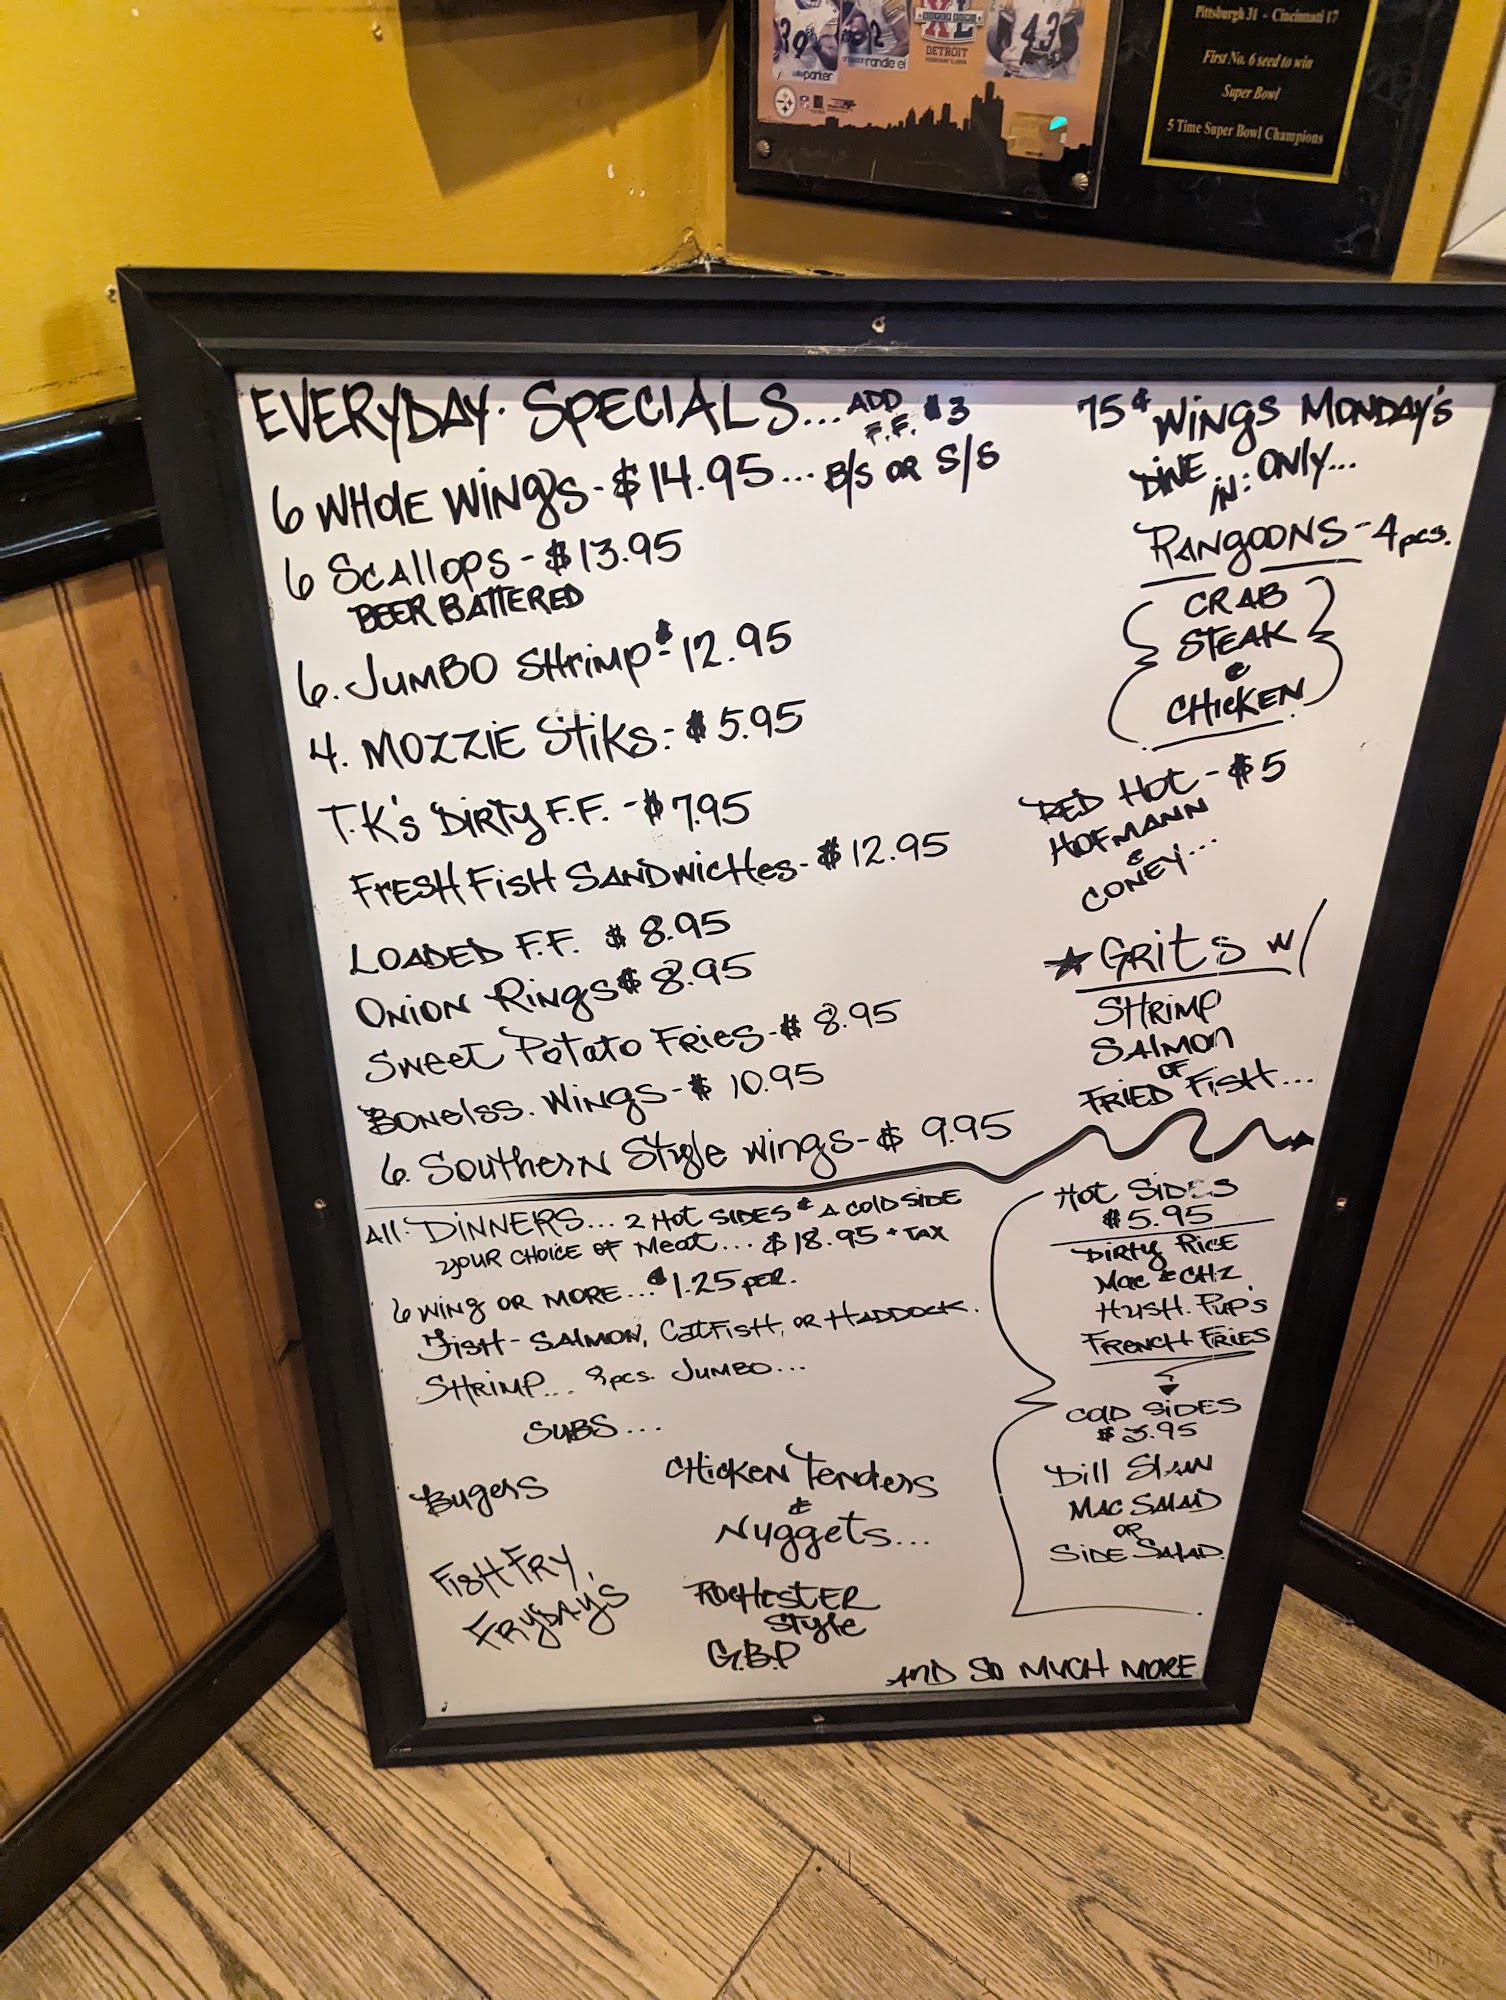 parker
randle el
XL
DETROIT
43
Pittsburgh 31 - Cincinnati 17
First No. 6 seed to win
Super Bowl
5 Time Super Bowl Champions
EVERYDAY. SPECIALS... ADD F.F. $3
6 WHOLE WINGS - $14.95... B/S OR S/S
6 SCALLOPS - $13.95
BEER BATTERED
6. JUMBO SHRIMP - $12.95
4. MOZZIE STIKS: - $5.95
T.K's DIRTY F.F. - $7.95
FRESH FISH SANDWICHES - $12.95
LOADED F.F. $8.95
ONION RINGS $8.95
SWEET POTATO FRIES - $8.95
BONELSS. WINGS - $10.95
6. SOUTHERN STYLE WINGS - $9.95
75¢ WINGS MONDAY'S
DINE IN: ONLY...
RANGOONS - 4 pcs.
CRAB
STEAK
&
CHICKEN
RED HOT - $5
HOFMANN
&
CONEY...
★ GRITS W/
SHRIMP
SALMON
OF
FRIED FISH...
ALL. DINNERS... 2 HOT SIDES & A COLD SIDE
YOUR CHOICE OF MEAT... $18.95 + TAX
6 WING OR MORE... $1.25 PER.
FISH - SALMON, CATFISH, OR HADDOCK.
SHRIMP... pcs. JUMBO...
SUBS...
BUGERS
CHICKEN TENDERS
&
NUGGETS...
FISH FRY,
FRYDAY'S
ROCHESTER
STYLE
G.B.P
HOT SIDES
$5.95
DIRTY RICE
MAC & CHZ
HUSH. PUP'S
FRENCH FRIES
COLD SIDES
$3.95
DILL SLAW
MAC SALAD
OR
SIDE SALAD.
AND SO MUCH MORE